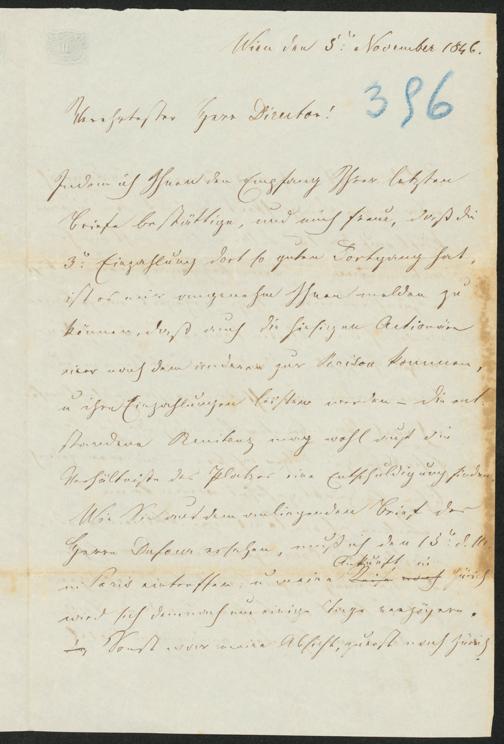 Wien den 5ᵗ November 1846.
396
Verehrtester Herr Director!
Indem ich Ihnen den Empfang Ihrer letzten
Briefe bestättige, und mich freue, daß die
3ᵗ Einzahlung dort so guten Fortgang hat,
ist es mir angenehm Ihnen melden zu
können, daß auch die hiesigen Actionäre
einer nach dem anderen zur kommen,
u ihre Einzahlungen leisten werden – die ent
standene Renitenz mag wohl auf die
Verhältniße des Platzes eine Entschuldigung finden.
Wie Sie aus dem anliegenden Brief des
Herrn Dufour ersehen, muß ich den 15ᵗ d. M.
in Paris eintreffen, u meine Ankunft in Zürich
wird sich demnach um einige Tage verzögern.
Sonst war meine Absicht, zuerst nach Zürich